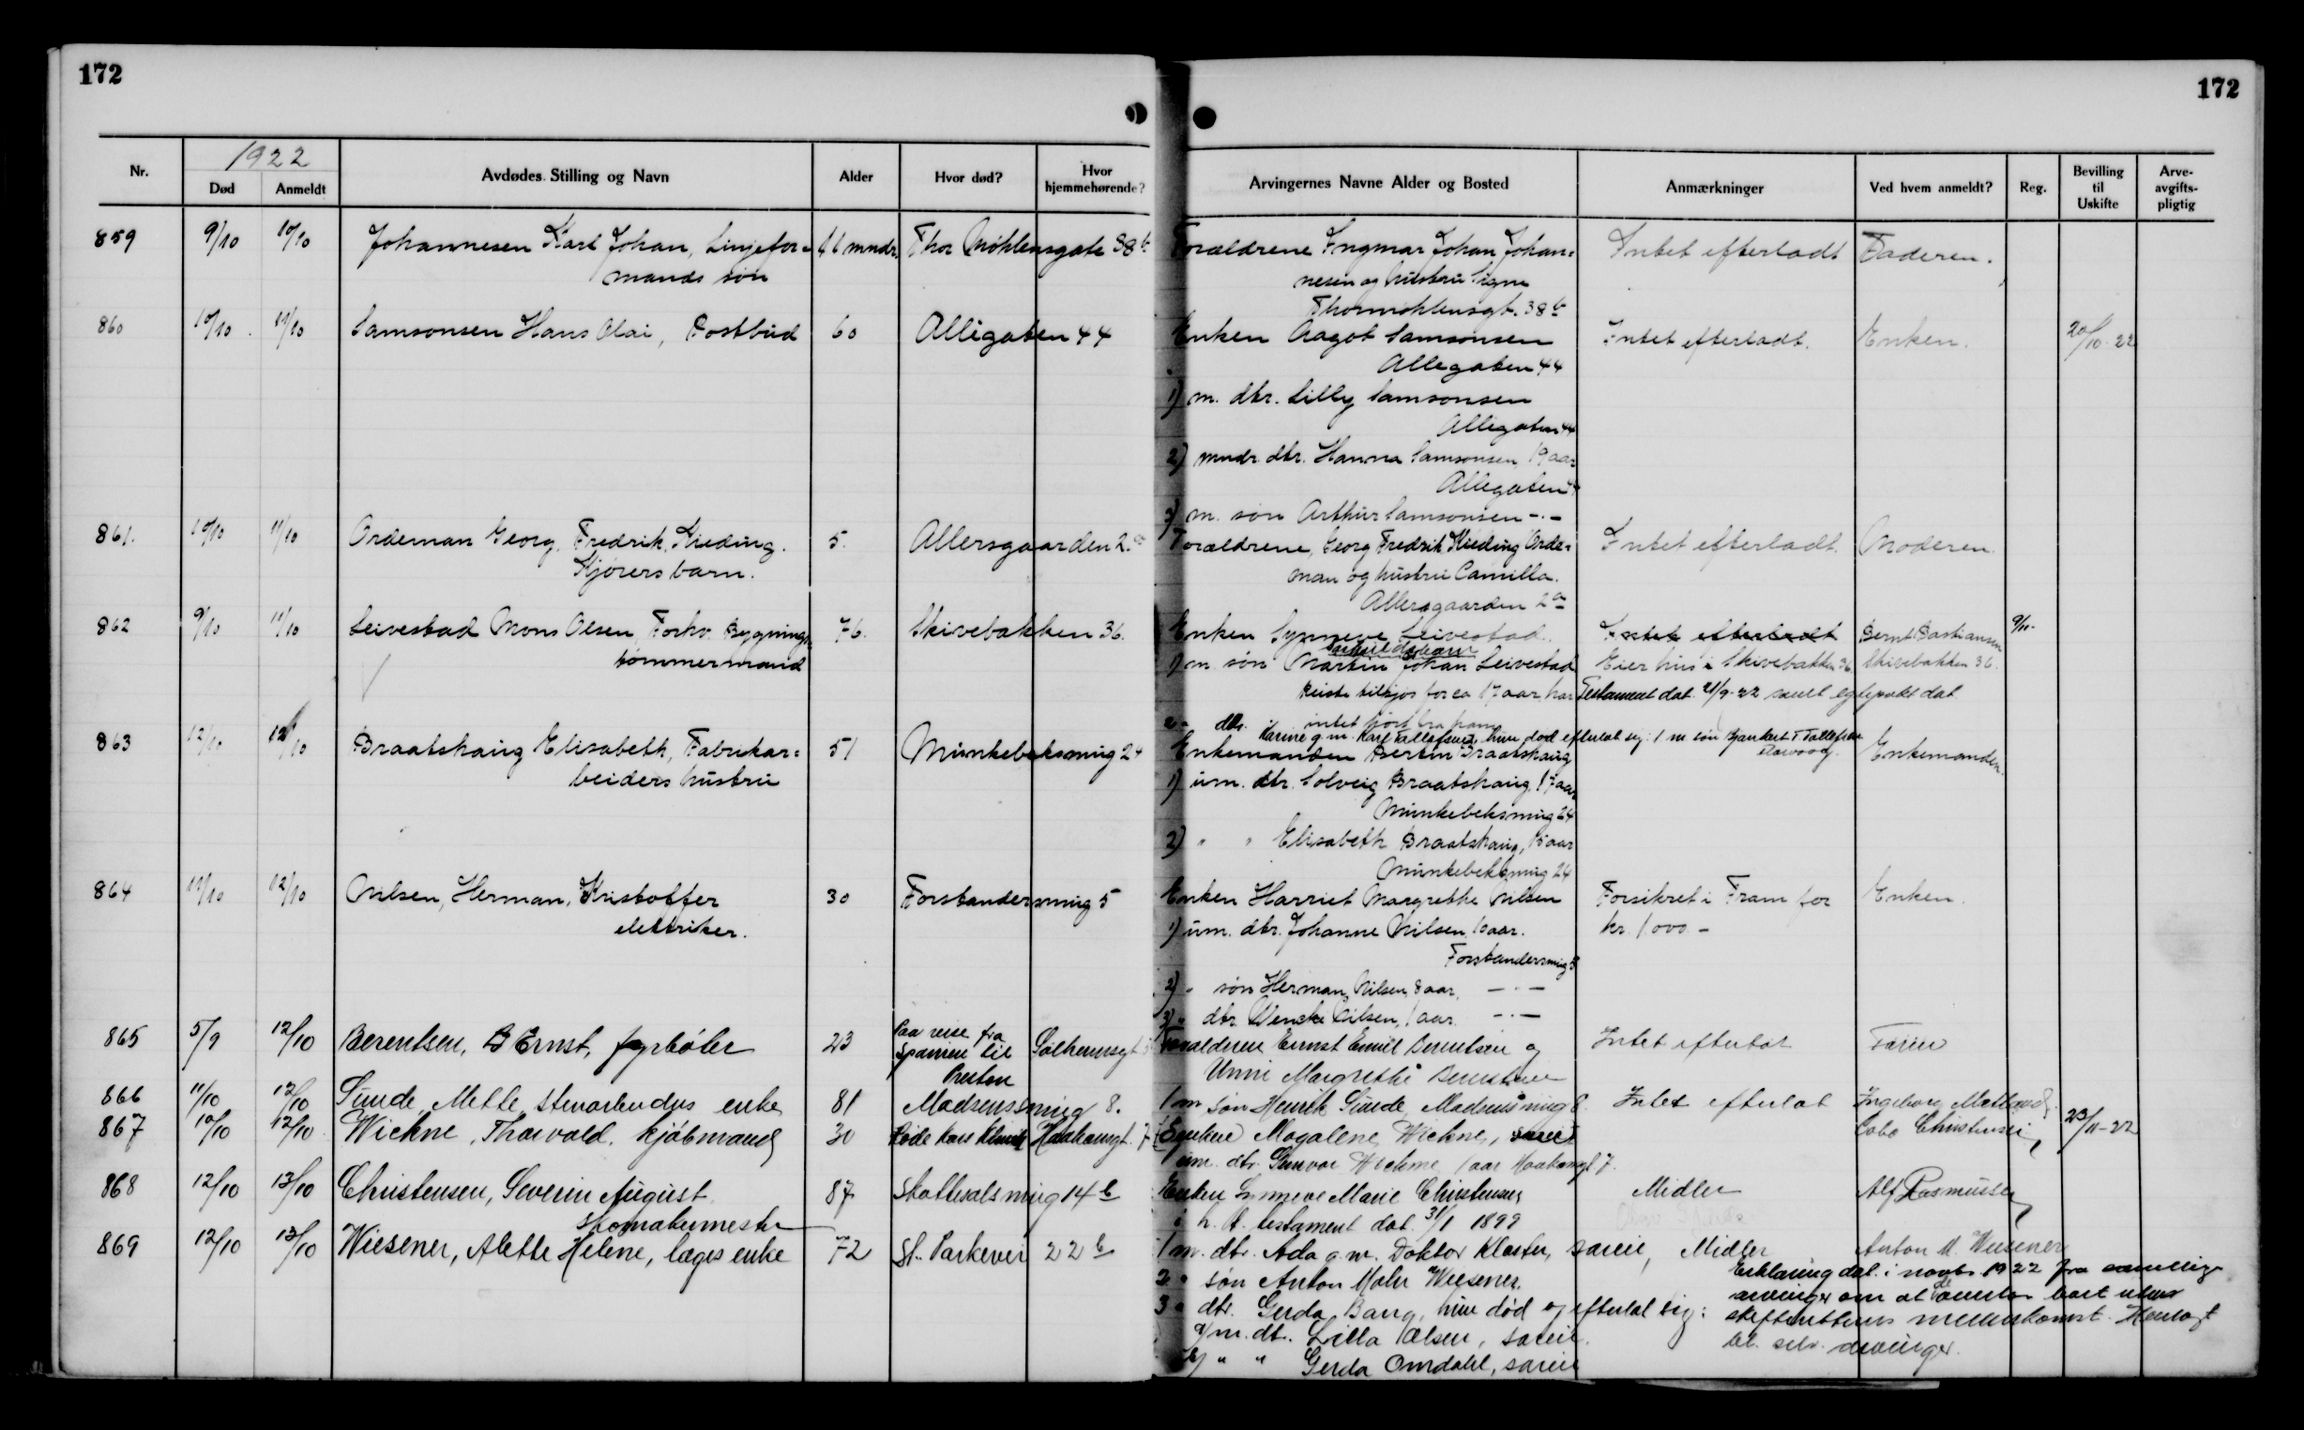 172
172
Nr.
1922
Død
Anmeldt
Avdødes Stilling og Navn
Alder
Hvor død?
Hvor hjemmehørende?
Arvingernes Navne Alder og Bosted
Anmærkninger
Ved hvem anmeldt?
Reg.
Bevilling til Uskifte
Arve-avgifts-pligtig
859 9/10 10/10 Johannesen Karl Johan, Linjefor= mndr. Thor Møhlensgate 38 b Forældrene Ingmar Johan Johan= Intet efterladt Faderen.
mands søn nesen og hustru Signe
Thormøhlensgt. 38 b
860 10/10 11/10 Samsonsen Hans Olai, Postbud 60 Allegaten 44 Enken Aagot Samsonsen Intet efterladt. Enken. 20/10-22
Allegaten 44
1) m. dtr. Lilly Samsonsen
Allegaten 44
2) mndr. dtr. Hanna Samsonsen 19 aar
Allegaten 44
3) m. søn Arthur Samsonsen -.-
861. 10/10 11/10 Ordeman Georg Fredrik Kieding. 5. Allersgaarden 2 a Forældrene, Georg Fredrik Kieding Orde= Intet efterladt. Moderen.
Kjørers barn. man og hustru Camilla.
Allersgaarden 2 a
862 9/10 11/10 Leivestad Mons Olsen Forhv. Bygnings 76. Skivebakken 36. Enken Synneve Leivestad. Intet efterladt Bernt Bastiansen 9/11.
tømmermand 1) m søn Martin Johan Leivestad Eier hus i Skivebakken 36. Skivebakken 36.
reiste tilsjøs for ca 17 aar har Testament dat 21/9-22 samt egtepakt dat
intet hørt fra ham
2 " dtr. Karine g.m. Karl Tallefsen, hun død efterlat sig: 1 m søn
863 12/10 12/10 Braatskaug Elisabeth, Fabrikar= 51 Munkebeksmug 24 Enkemanden Bertin Braatskaug Enkemanden.
beiders hustru 1) um. dtr. Solveig Braatskaug, 17 aar
Munkebeksmug 24
2) " " Elisabeth Braatskaug, 15 aar
Munkebeksmug 24
864 11/10 12/10 Nilsen, Herman, Kristoffer 30 Forstandersmug 5 Enken Harriet Margrethe Nilsen Forsikret i Fram for Enken.
elektriker. 1) um. dtr. Johanne Nilsen, 10 aar. kr. 1000.-
Forstandersmug 5
2) " søn Herman Nilsen, 8 aar, -.-
3) " dtr Wencke Nilsen, 1 aar. -.-
865 5/9 12/10 Berentsen, Ernst, fyrbøter 23 Paa reise fra Spanien til Preston Solheimsgt Forældrene Ernst Emil Berentsen og Intet efterlat Faren
Unni Margrethe Berentsen
866 11/10 12/10 Sunde, Mette, stenarbeiders enke 81 Madsensmug 8. 1 m søn Henrik Sunde, Madsensmug 8. Intet efterlat Ingeborg Mætland
867 10/10 12/10 Wickne, Thorvald, kjøbmand 30 Røde Kors Klinik Haakonsgt. 7 Enken Magalene Wickne, Christensen 23/11-22
1 um. dtr. Gunvor Wickne, 1 aar Haakonsgt 7.
868 12/10 13/10 Christensen, Severin August 87 Skottesalsmug 14 b Enken Synneve Marie Christensen Midler Alf Rasmussen
skomakermester i h. t. testament dat. 31/1 1899
869 12/10 13/10 Wiesener, Alette Helene, læges enke 72 St. Parkevei 22 b 1 m. dtr. Ada g.m. Doktor Kloster, Midler Anton M. Wiesener
2 " søn Anton Mohr Wiesener. Erklæring dat. i novbr. 1922 fra samtlige
3 " dtr. Gerda Bang, hun død og efterlat sig: arvinger om at
a/ m. dtr. Lilla Olsen, skifterettens mellemkomst.
b/ " " Gerda Omdahl, arvinger.